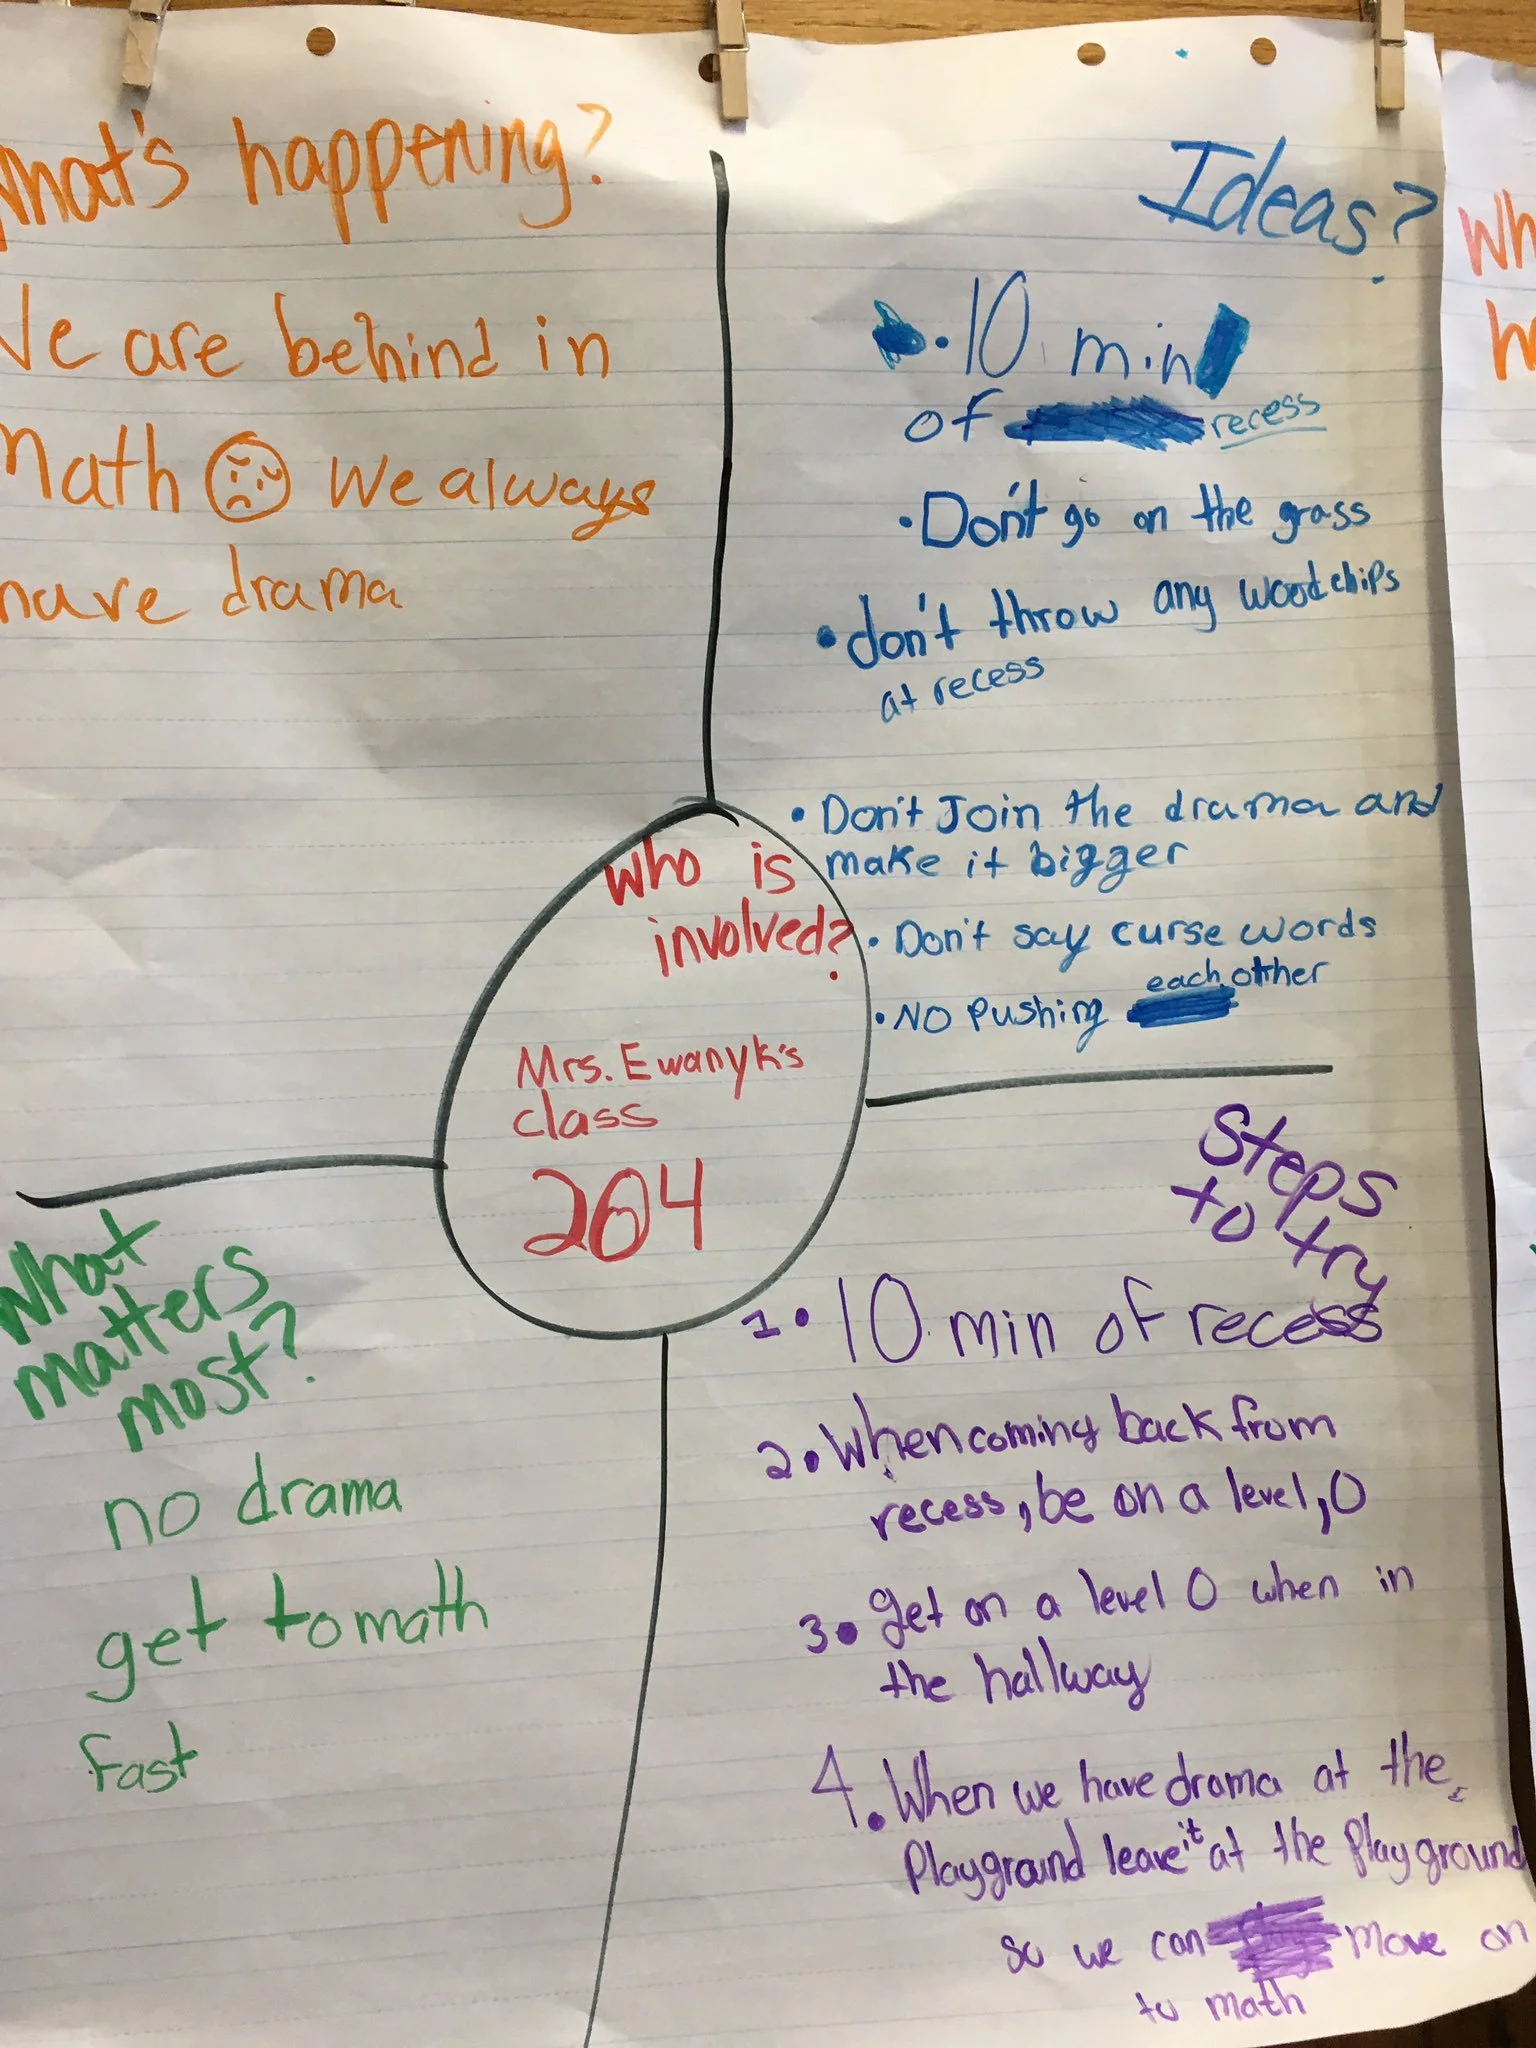 What's happening?
We are behind in
Math we always
have drama
Ideas?
• 10 min
of recess
• Don't go on the grass
• don't throw any woodchips
at recess
• Don't Join the drama and
make it bigger
• Don't say curse words
• NO Pushing each other
Who is
involved?
Mrs. Ewanyk's
class
204
What
matters
most?
no drama
get to math
fast
Steps
to try
1. 10 min of recess
2. When coming back from
recess, be on a level, 0
3. get on a level 0 when in
the hallway
4. When we have drama at the
Playground leave it at the playground
so we can move on
to math
Wh
h